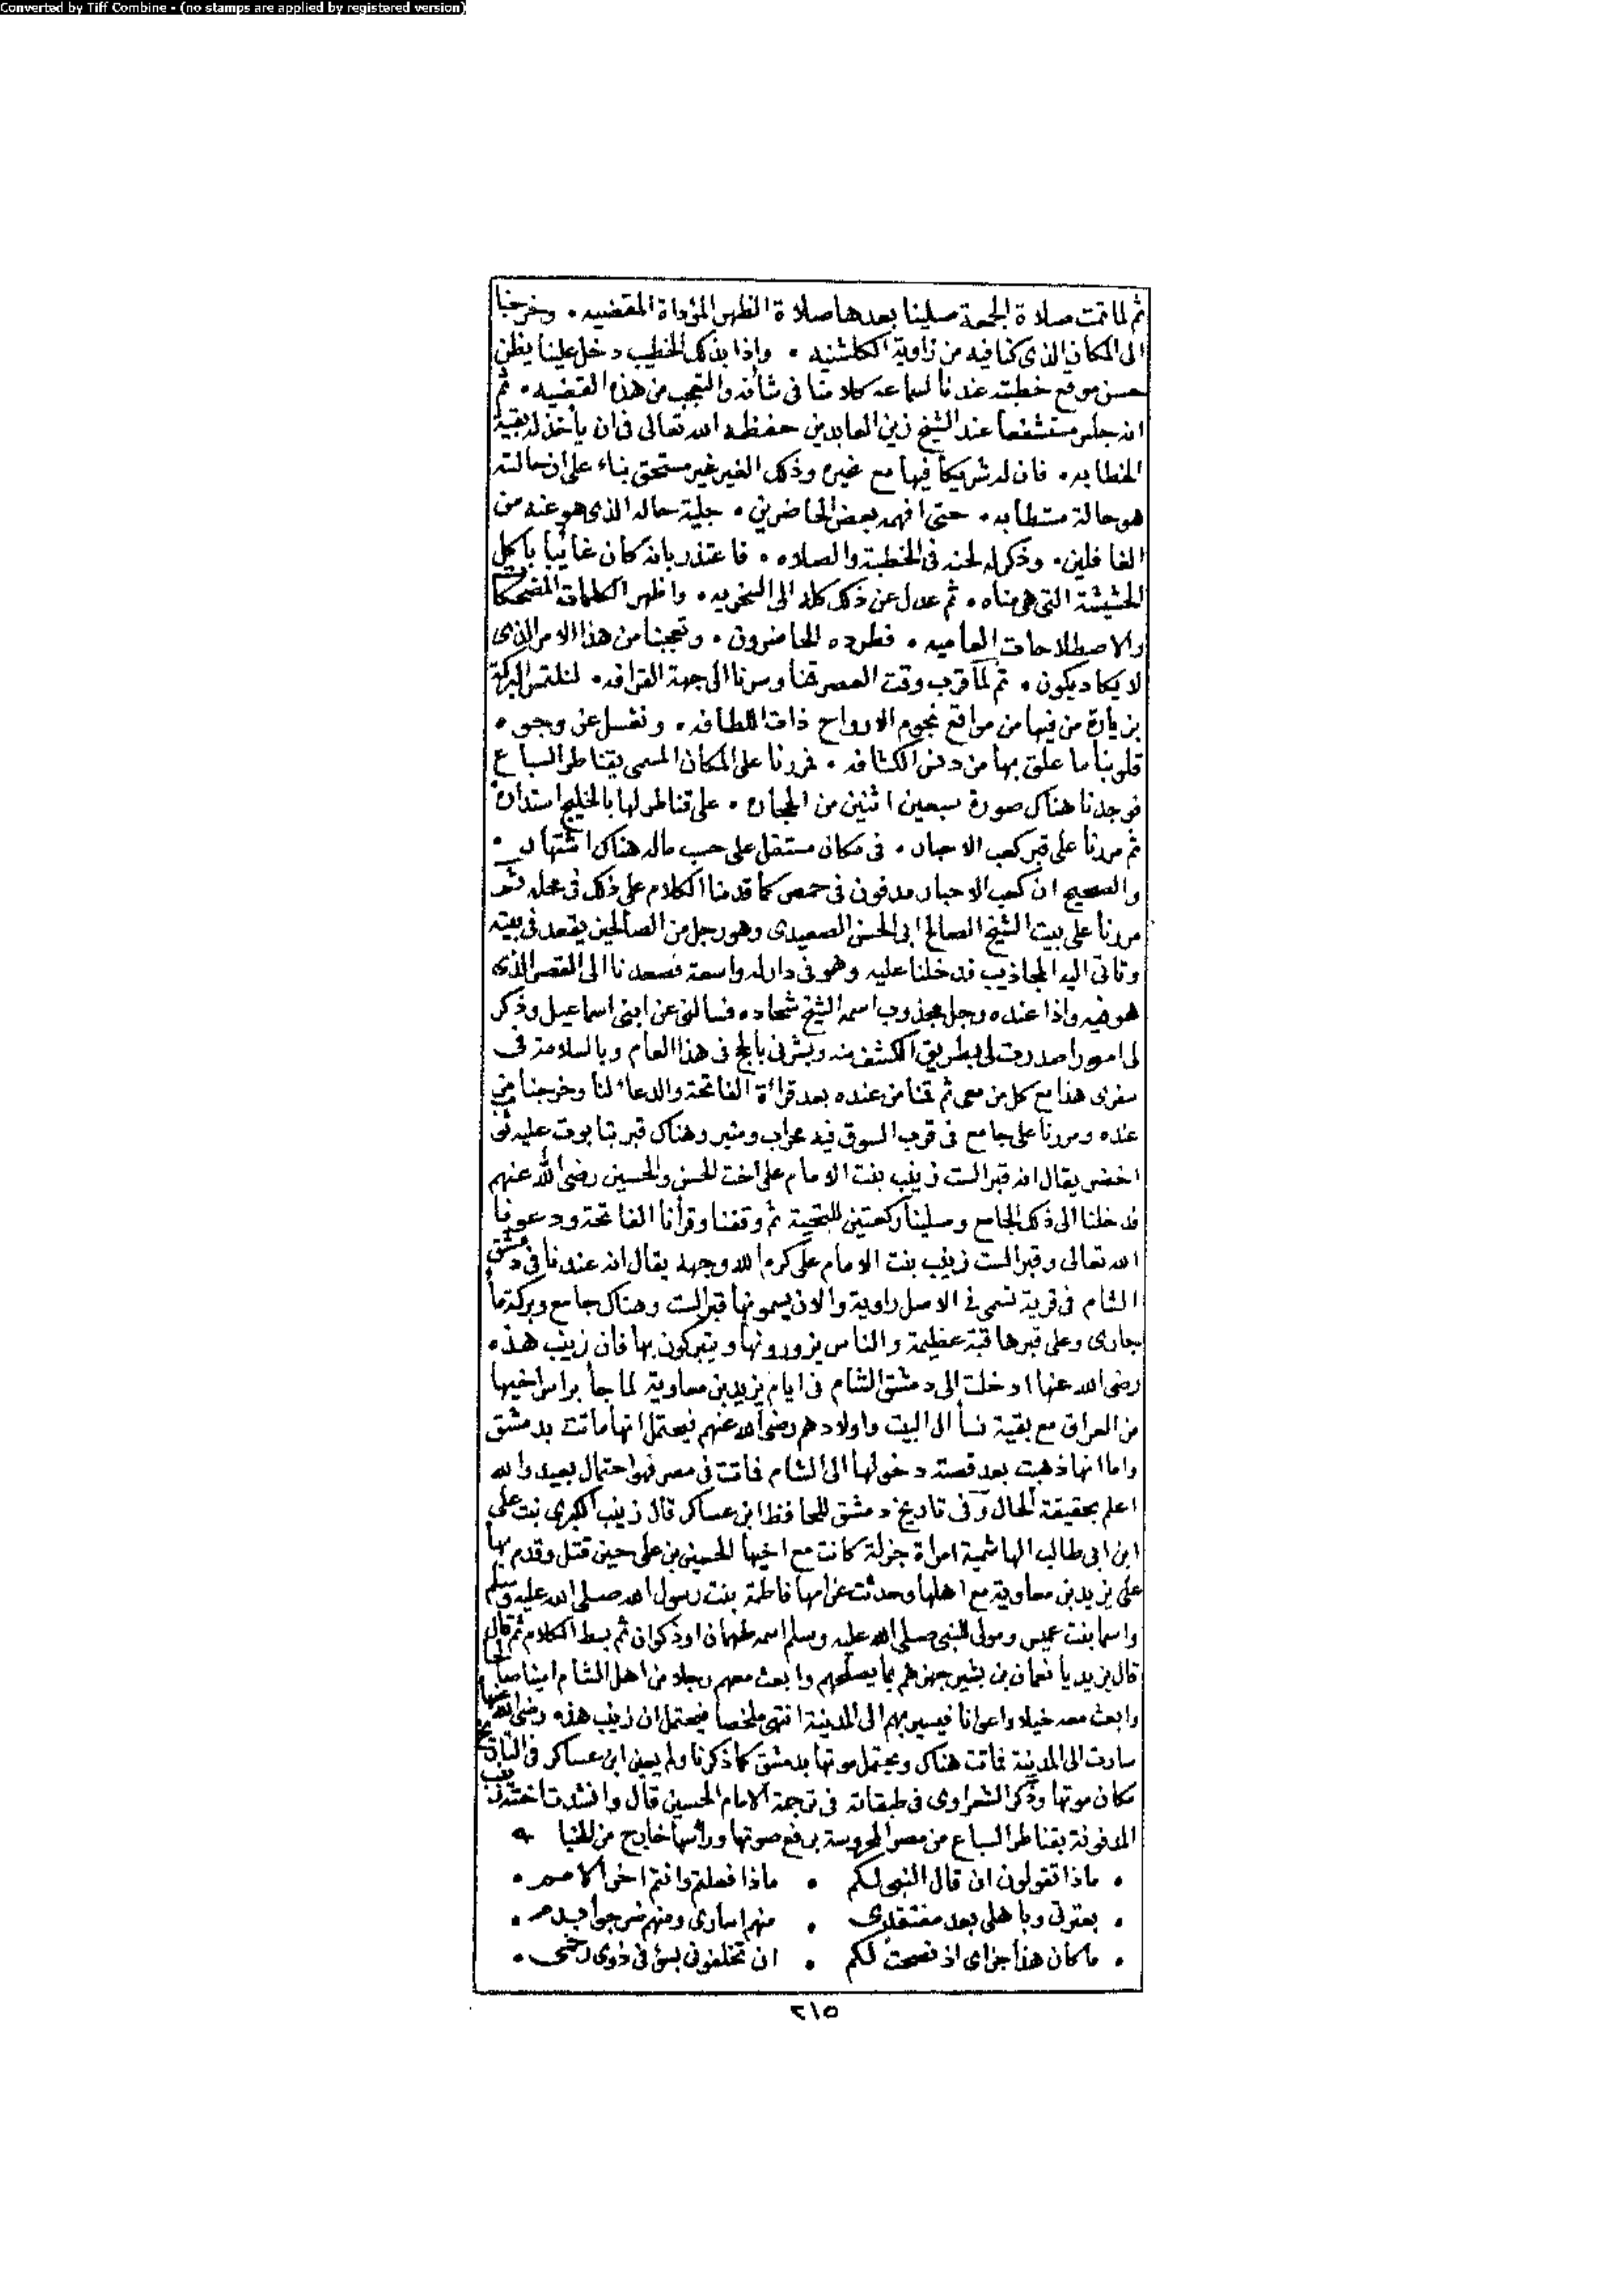 Converted by Tiff Combine - (no stamps are applied by registered version)
ثم لما تمت صلاة الجمعة صلينا بعدها صلاة الظهر المؤداة المقضيه • وخرجنا
الى المكان الذى كنا فيه من زاوية الكلشنيه • واذا بذلك الخطيب دخل علينا يظن
حسن موقع خطبته عندنا لسماعه كلامنا فى شأنه والتعجب من هذه القضيه • ثم
انه جلس مستشفعا عند الشيخ زين العابدين حفظه الله تعالى فى ان يأخذ له بقية
الخطابه • فان له شريكا فيها مع غيره وذلك الغير غير مستحق بناء على ان حالته
هو حالة مستطابه • حتى افهمه بعض الحاضرين • جلية حاله الذى هو عنه من
الغافلين • وذكر له لحنه فى الخطبة والصلاه • فاعتذر بانه كان غائبا باكل
الحشيشة التى هى مناه • ثم عدل عن ذلك كله الى السخريه • واظهر الكلمات المضحكا
والاصطلاحات العاميه • فطرده الحاضرون • وتعجبنا من هذا الامر الذى
لا يكاد يكون • ثم لما قرب وقت العصر قمنا وسرنا الى جهة القرافه • لنلتمس البركة
بزيارة من فيها من مواقع نجوم الارواح ذات اللطافه • ونغسل عن وجوه
قلوبنا ما علق بها من دنس الكثافه • فمررنا على المكان المسمى بقناطر السباع
فوجدنا هناك صورة سبعين اثنين من الحجاره • على قناطر لها بالخليج استداره
ثم مررنا على قبر كعب الاحبار • فى مكان مستقل على حسب ماله هناك اشتهار •
والصحيح ان كعب الاحبار مدفون فى حمص كما قدمنا الكلام على ذلك فى محله ثم
مررنا على بيت الشيخ الصالح ابى الحسن الصعيدى وهو رجل من الصالحين يقعد فى بيته
وتأتى اليه المجاذيب فدخلنا عليه وهو فى دار له واسعة فصعدنا الى القصر الذى
هو فيه واذا عنده رجل مجذوب اسمه الشيخ شحاده فسالنى عن ابنى اسماعيل وذكر
لى امورا صدرت لى بطريق الكشف منه وبشرنى بالحج فى هذا العام وبالسلامة فى
سفرى هذا مع كل من معى ثم قمنا من عنده بعد قرائة الفاتحة والدعاء لنا وخرجنا من
عنده ومررنا على جامع فى قرب السوق فيه محراب ومنبر وهناك قبر بتابوت عليه ثوب
اخضر يقال انه قبر الست زينب بنت الامام على اخت الحسن والحسين رضى الله عنهم
فدخلنا الى ذلك الجامع وصلينا ركعتين للتحية ثم وقفنا وقرأنا الفاتحة ودعونا
الله تعالى وقبر الست زينب بنت الامام على كرم الله وجهه يقال انه عندنا فى دمشق
الشام فى قرية تسمى فى الاصل راوية والان يسمونها قبر الست وهناك جامع وبركة ما
جارى وعلى قبرها قبة عظيمة والناس يزورونها ويتبركون بها فان زينب هذه
رضى الله عنها ادخلت الى دمشق الشام فى ايام يزيد بن معاوية لما جأ براس اخيها
من العراق مع بقية نسأ ال البيت واولادهم رضى الله عنهم فيحتمل انها ماتت بدمشق
واما انها ذهبت بعد قصة دخولها الى الشام فماتت فى مصر فهو احتمال بعيد والله
اعلم بحقيقة الحال وفى تاريخ دمشق للحافظ ابن عساكر قال زينب الكبرى بنت على
ابن ابى طالب الهاشمية امراة جزلة كانت مع اخيها الحسين بن على حين قتل وقدم بها
على يزيد بن معاوية مع اهلها وحدثت عن امها فاطمة بنت رسول الله صلى الله عليه وسلم
واسما بنت عميس ومولى للنبى صلى الله عليه وسلم اسمه طهمان او ذكوان ثم بسط الكلام ثم قال
قال يزيد يا نعمان بن بشير جهزهم بما يصلحهم وابعث معهم رجلا من اهل الشام امينا صالحا
وابعث معه خيلا واعوانا فيسير بهم الى المدينة انتهى ملخصا فيحتمل ان زينب هذه رضى الله عنها
سارت الى المدينة فماتت هناك ويحتمل موتها بدمشق كما ذكرنا ولم يعين ابن عساكر فى التاريخ
مكان موتها وذكر الشعراوى فى طبقاته فى ترجمة الامام الحسين قال وانشدت اخته زينب
المدفونة بقناطر السباع من مصر المحروسة برفع صوتها ورأسها خارج من الخبا
• ماذا تقولون ان قال النبى لكم • ماذا فعلتم وانتم اخر الامم •
• بعترتى وباهلى بعد مفتقدى • منهم اسارى ومنهم ضرجوا بدم •
• ما كان هذا جزاى اذ نصحت لكم • ان تخلفونى بسؤ فى ذوى رحمى •
٢١٥